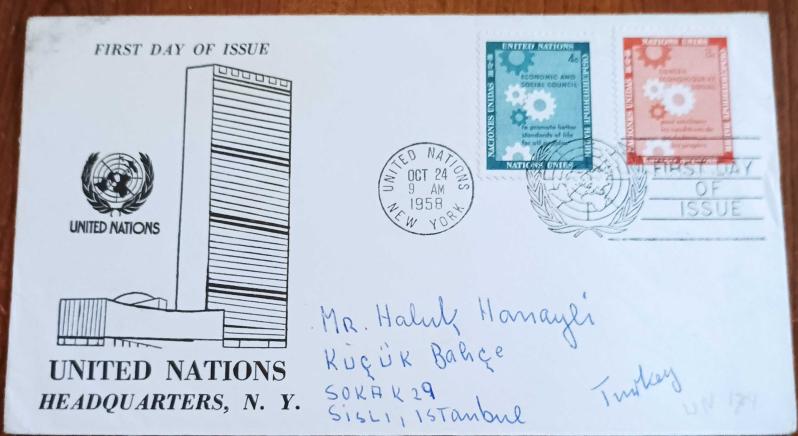 FIRST DAY OF ISSUE
UNITED NATIONS
UNITED NATIONS
HEADQUARTERS, N. Y.
UNITED NATIONS
OCT 24
9 AM
1958
NEW YORK
UNITED NATIONS
4c
ECONOMIC AND
SOCIAL COUNCIL
to promote better
standards of life
for all
NACIONES UNIDAS
NATIONS UNIES
NATIONS UNIES
8c
CONSEIL
ECONOMIQUE ET
SOCIAL
NACIONES UNIDAS
FIRST DAY
OF
ISSUE
Mr. Haluk
Küçük Bahçe
SOKAK 29
Sisli, istanbul
Turkey